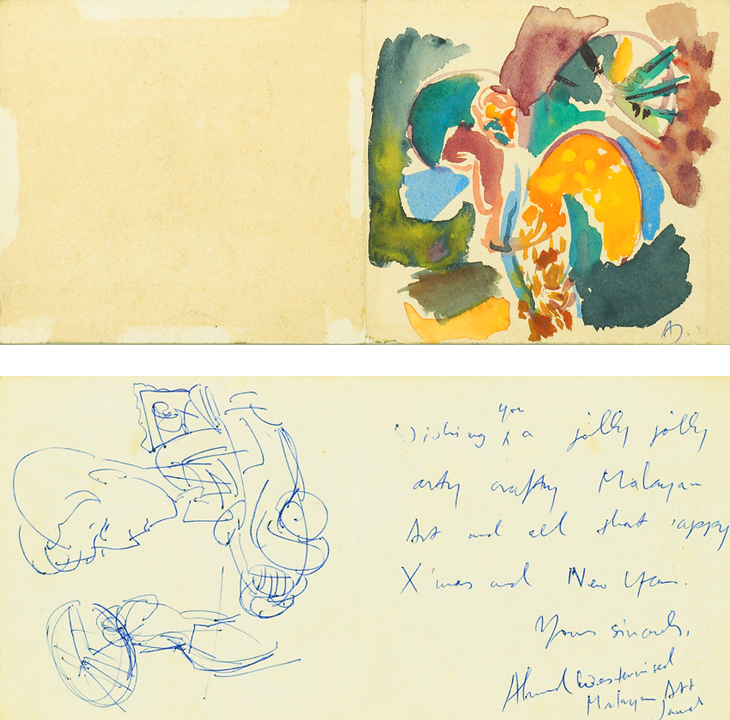 AJ.
Wishing you a jolly jolly
arty crafty Malayan
Art and all that 'appy
X'mas and New Year.
Yours sincerely,
Ahmad Westernised
Malayan Art